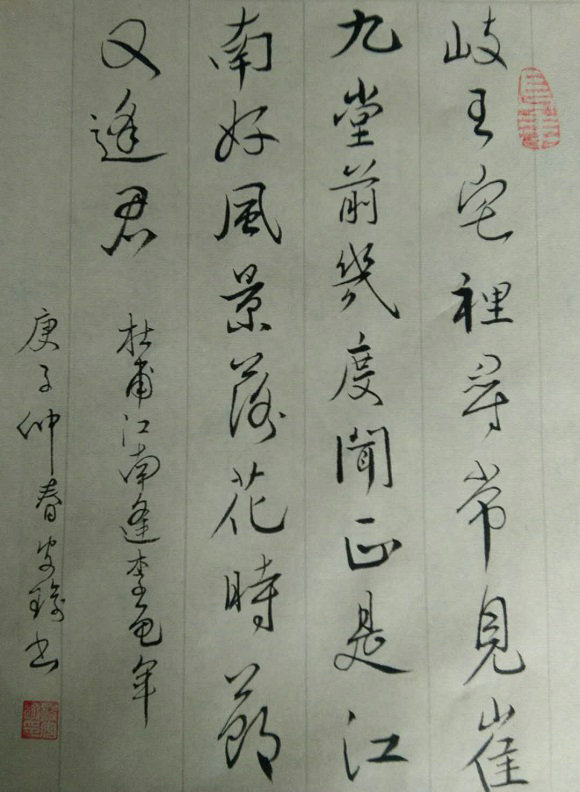 岐王宅裡尋常見崔
九堂前幾度聞正是江
南好風景落花時節
又逢君
杜甫江南逢李龟年
庚子仲春安瑜书